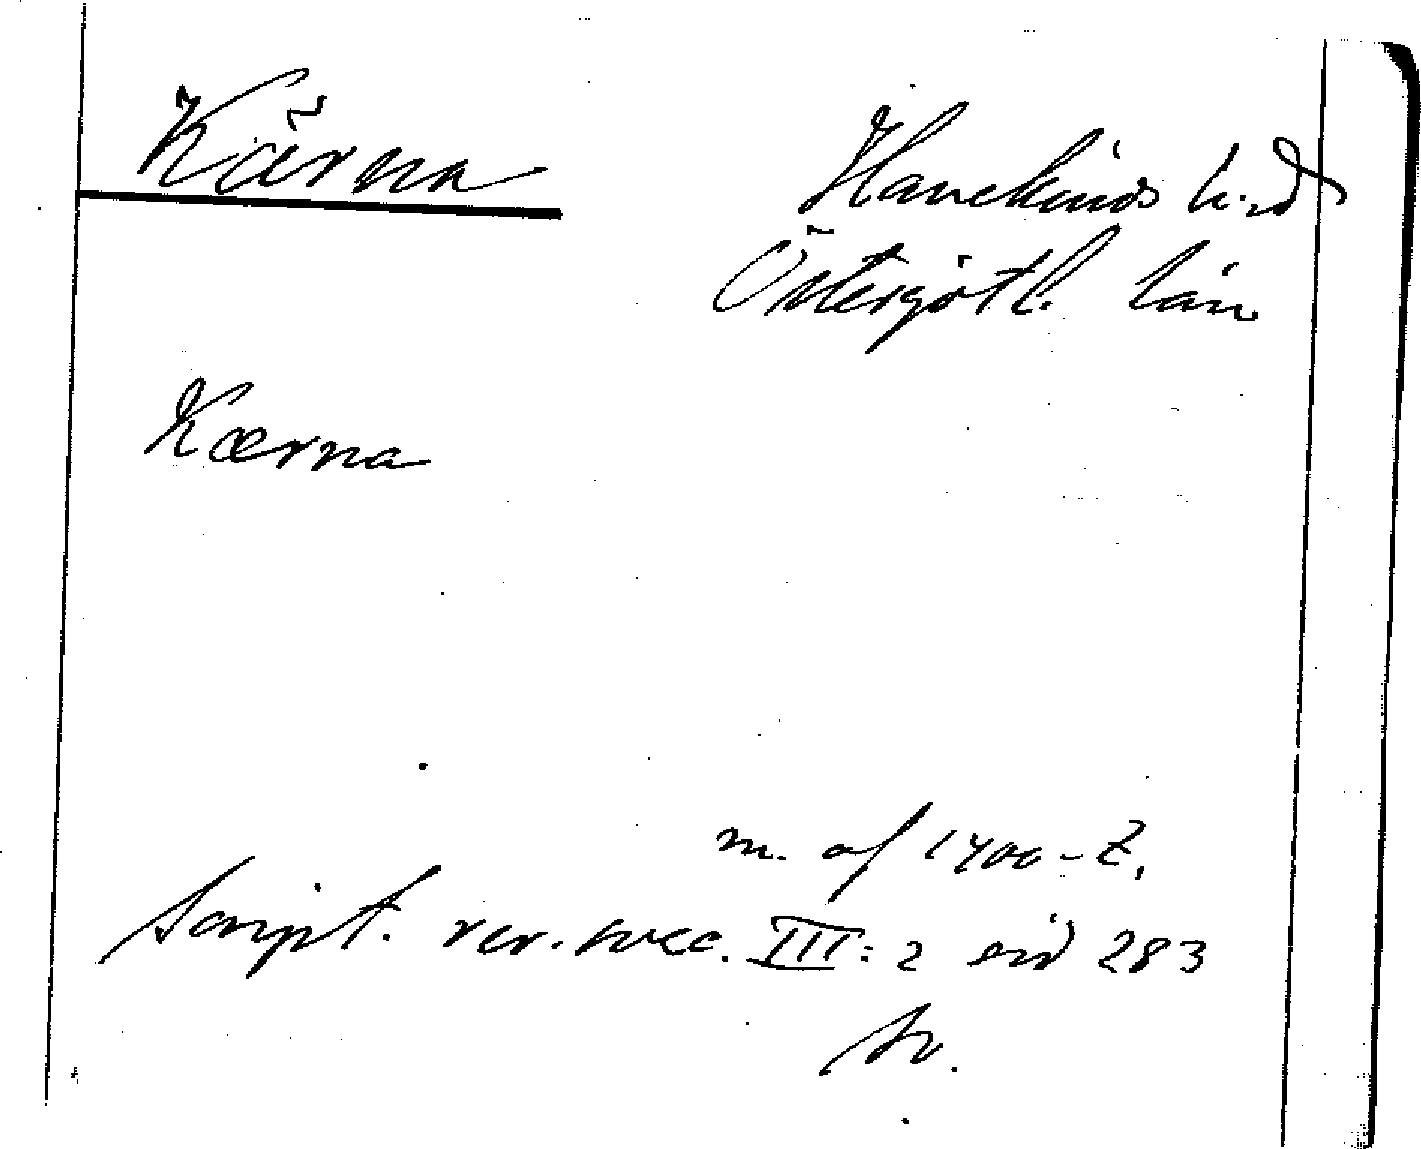 Kärna
Hanekinds h:d
Östergötl. län
Kærna
m. af 1400-t.
Script. rer. svec. III:2 sid 283
sv.